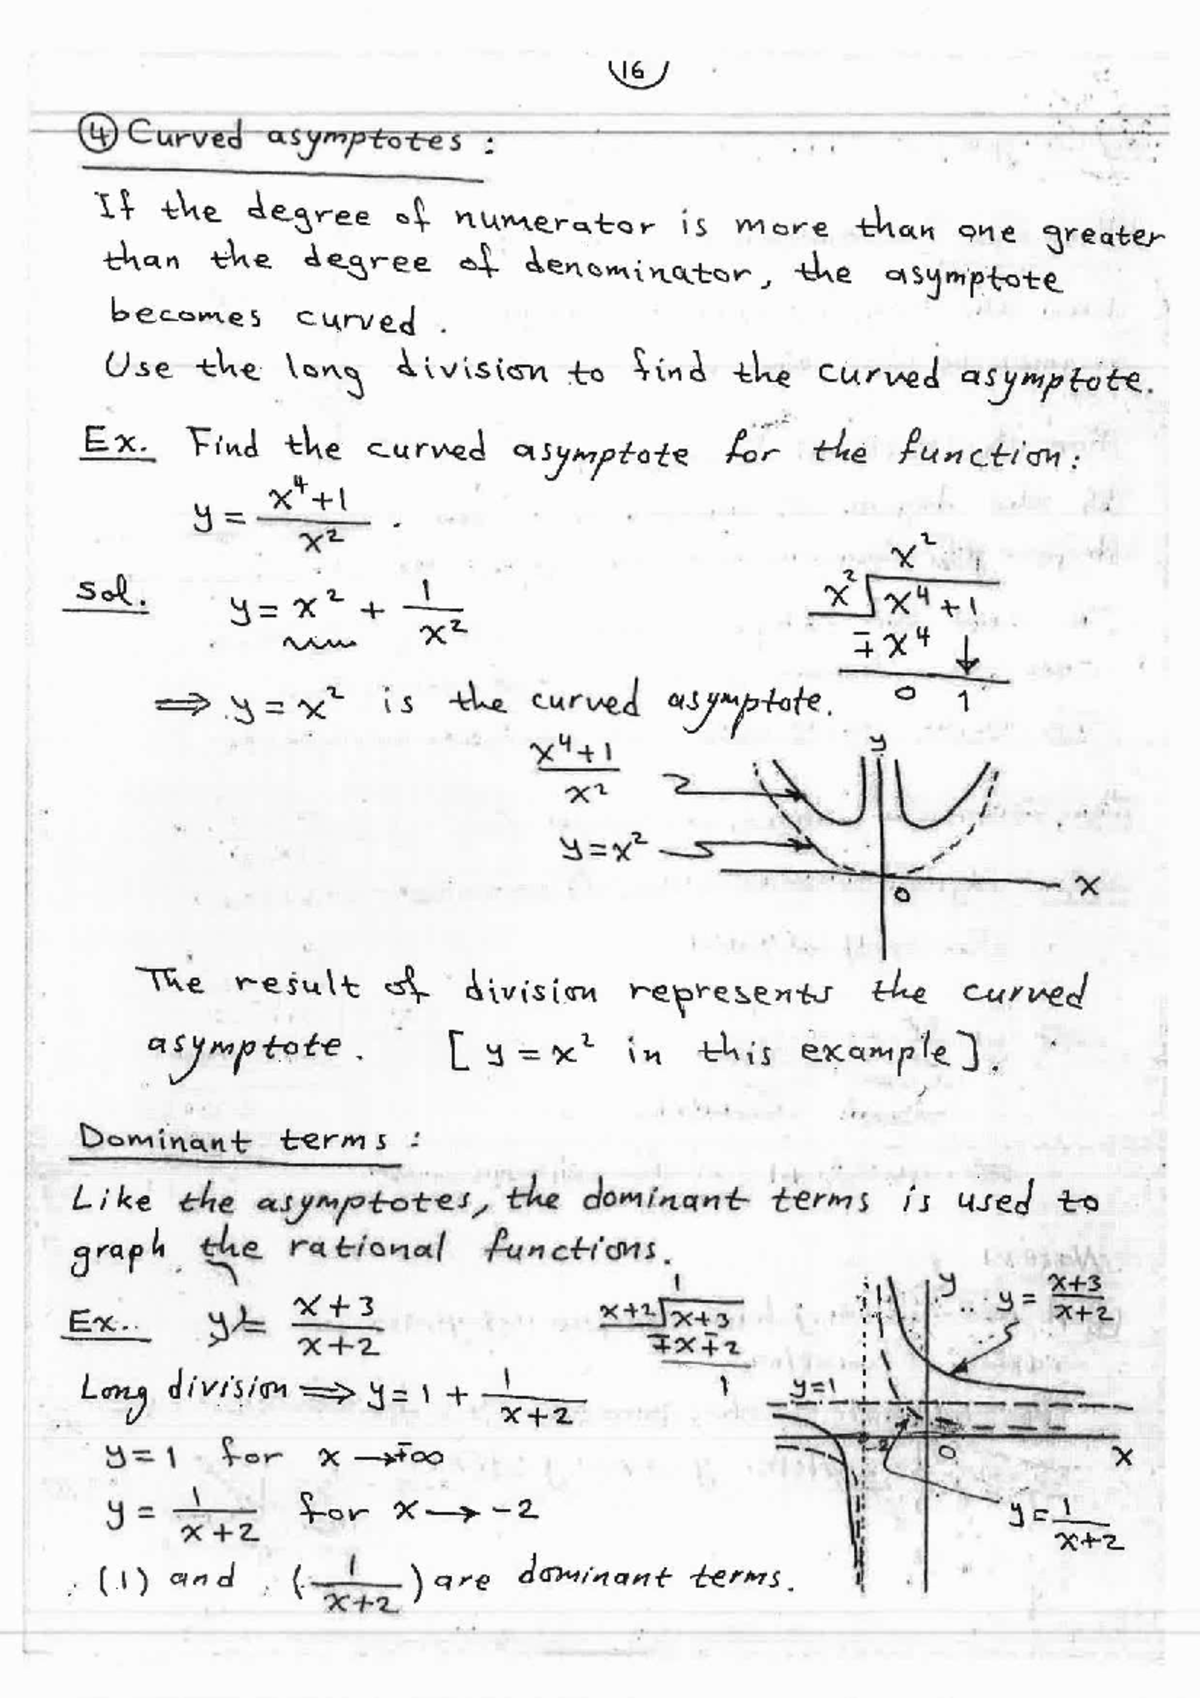 16
④ Curved asymptotes :
If the degree of numerator is more than one greater
than the degree of denominator, the asymptote
becomes curved .
Use the long division to find the curved asymptote.
Ex. Find the curved asymptote for the function:
y = (x^4+1)/x^2 .
sol. y = x^2 + 1/x^2
x^2
x^2 ) x^4 + 1
∓ x^4 ↓
0 1
⟹ y = x^2 is the curved asymptote.
(x^4+1)/x^2
y = x^2
y
x
0
The result of division represents the curved
asymptote. [ y = x^2 in this example ].
Dominant terms :
Like the asymptotes, the dominant terms is used to
graph the rational functions.
Ex. y = (x+3)/(x+2)
1
x+2 ) x+3
∓x∓2
1
Long division ⟹ y = 1 + 1/(x+2)
y = 1 for x → ∓∞
y = 1/(x+2) for x → -2
(1) and (1/(x+2)) are dominant terms.
y
y = (x+3)/(x+2)
y=1
-2
0
x
y = 1/(x+2)